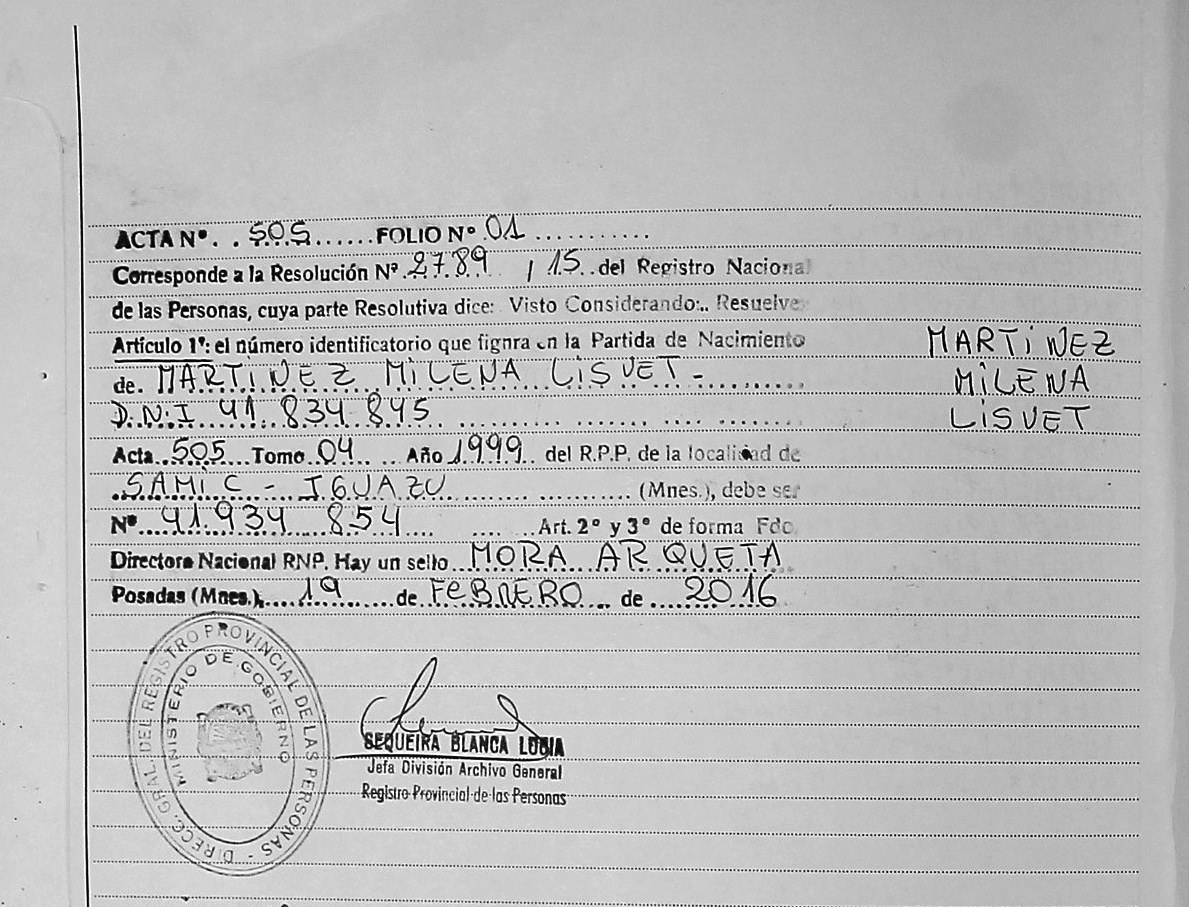 ACTA Nº. . 505......FOLIO Nº 01 ............
Corresponde a la Resolución Nº 2789 / 15 del Registro Nacional
de las Personas, cuya parte Resolutiva dice: Visto Considerando:.. Resuelve
Artículo 1º: el número identificatorio que fignra en la Partida de Nacimiento
de. MARTINEZ MILENA LISVET-
D.N.I 41 834 845
Acta 505 Tomo 04 Año 1999 del R.P.P. de la localidad de
SAMIC - IGUAZU (Mnes.), debe ser
Nº 41.934 854 Art. 2º y 3º de forma Fdo.
Directora Nacional RNP. Hay un sello MORA ARQUETA
Posadas (Mnes.), 19 de FEBRERO de 2016
MARTINEZ
MILENA
LISVET
DIRECC. GRAL. DEL REGISTRO PROVINCIAL DE LAS PERSONAS -
MINISTERIO DE GOBIERNO
SEQUEIRA BLANCA LUCIA
Jefa División Archivo General
Registro Provincial de las Personas